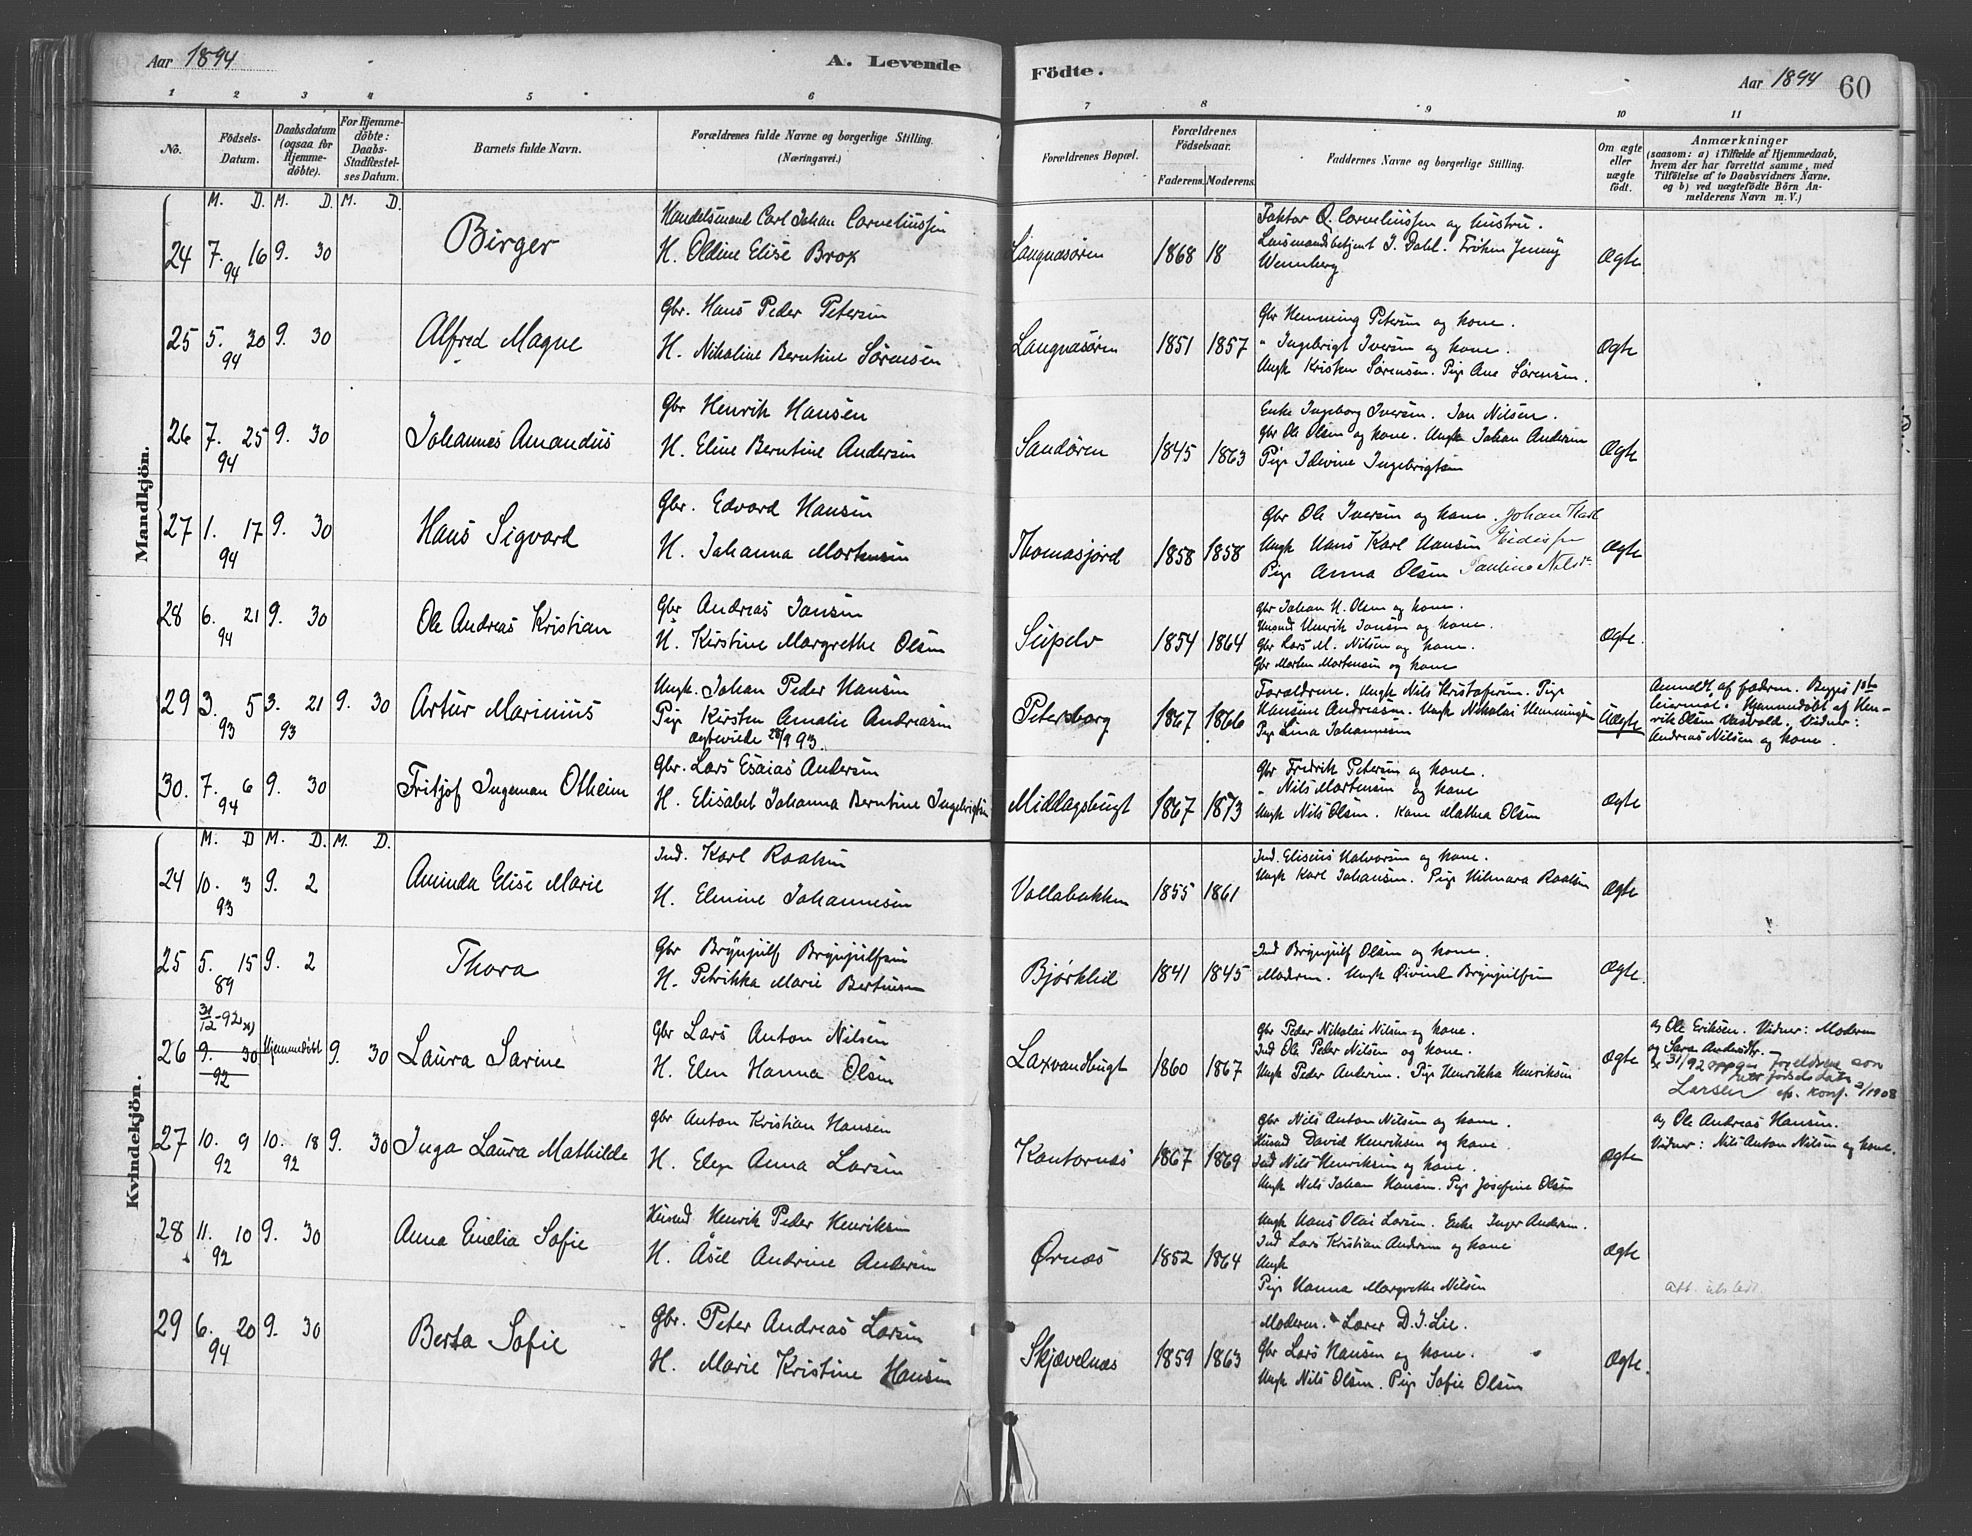 Aar 1894
A. Levende
Födte.
Aar 1894
60
1 2 3 4 5 6 7 8 9 10 11
No.
Födsels-
Datum.
Daabsdatum
(ogsaa for
Hjemme-
döbte).
For Hjemme-
döbte:
Daabs-
Stadfæstel-
ses Datum.
Barnets fulde Navn.
Forældrenes fulde Navne og borgerlige Stilling.
(Næringsvei.)
Forældrenes Bopæl.
Forældrenes
Födselsaar.
Faderens. Moderens.
Faddernes Navne og borgerlige Stilling.
Om ægte
eller
uægte
födt.
Anmærkninger
(saasom: a) i Tilfælde af Hjemmedaab,
hvem der har forrettet samme, med
Tilföielse af to Daabsvidners Navne,
og b) ved uægtefödte Börn An-
melderens Navn m. V.)
Mandkjön.
M. D. M. D. M. D.
24 7. 16 94 9. 30
Birger
Handelsmand Carl Johan Corneliussen
H. Oldine Elise Brox
Langnæsøren
1868 18
Faktor O. Corneliussen og hustru.
Lensmandsbetjent I. Dahl. Frøken Jenny
Wennberg
Ægte
25 5. 30 94 9. 30
Alfred Magne
Gbr. Hans Peder Petersen
H. Nikoline Berntine Sørensen
Langnæsøren
1851 1857
Gbr Henning Petersen og kone.
" Ingebrigt Iversen og kone.
Ungk Kristen Sørensen. Pige Ane Sørensen.
Ægte
26 7. 25 94 9. 30
Johannes Amandus
Gbr Henrik Hansen
H. Eline Berntine Andersen
Sandøren
1845 1863
Enke Ingeborg Iversen. Jon Nilsen.
Gbr Ole Olsen og kone. Ungk Johan Andersen
Pige Idevine Ingebrigtsen
Ægte
27 1. 17 94 9. 30
Hans Sigvard
Gbr. Edvard Hansen
H. Johanna Mortensen
Thomasjord
1858 1858
Gbr Ole Iversen og kone. Johan Karl
Ungk Hans Karl Hansen
Pige Anna Olsen
Ægte
28 6. 21 94 9. 30
Ole Andreas Kristian
Gbr Andreas Jansen
H. Kirstine Margrethe Olsen
Seipelv
1854 1864
Gbr Johan H. Olsen og kone.
Henrik Jansen og kone.
Gbr Lars M. Nilsen og kone.
Gbr Morten Mortensen og kone
Ægte.
29 3. 5 93 3. 21 93 9. 30
Artur Marinius
Ungk. Johan Peder Hansen
Pige Kirsten Amalie Andreasen
ægteviede 28/9 93.
Petersborg
1867 1866
Forældrene. Ungk Nils Kristofersen. Pige
Hansine Andreasen. Ungk Nikolai Henningsen
Pige Lina Johannesen
Uægte
Anmeldt af faderen. Begges 1ste
leiermaal. Hjemmedøbt af Hen-
rik Olsen Vasvold. Vidner:
Andreas Nilsen og kone.
30. 7. 6 94 9. 30
Fritjof Ingeman Otheim
Gbr. Lars Esaias Andersen
H. Elisabet Johanna Berntine Ingebrigtsen
Middagsbugt
1867 1873
Gbr Fredrik Petersen og kone.
" Nils Mortensen og kone
Ungk Nils Olsen. Kone Mathea Olsen
Ægte
Kvindekjön.
M. D M. D. M. D.
24 10. 3 93 9. 2
Aminda Elise Marie
Ind. Karl Roaksen
H. Elenine Johannesen
Vollabakken
1855 1861
Ind. Eliseus Halvorsen og kone.
Ungk Karl Johansen. Pige Hilmara Roaksen
Ægte
25 5. 15 89 9. 2
Thora
Gbr Brynjulf Brynjulfsen
H. Petrikka Marie Berteusen
Bjørklid
1841 1845
Ind Brynjulf Olsen og kone.
Moderen. Ungk Øivind Brynjulfsen
Ægte.
31/12-92 x)
26 9. 30 92 Hjemmedøbt 9. 30
Laura Sarine
Gbr Lars Anton Nilsen
H. Elen Hanna Olsen
Laxvandbugt
1860 1867
Gbr Peder Nikolai Nilsen og kone.
Ind Ole Peder Nilsen og kone.
Ungk Peder Andersen. Pige Henrikka Henriksen
Ægte
af Ole Eriksen. Vidner: Moderen
og Sara Andersdtr.
x 31/92 opgav Foreldrene som
rett fødselsdato
Larsen ep. konf. 2/1908
27 10. 9 92 10. 18 92 9. 30
Inga Laura Mathilde
Gbr Anton Kristian Hansen
H. Elen Anna Larsen
Kantornæs
1867 1869
Gbr Nils Anton Nilsen og kone.
Husmd David Henriksen og kone.
Ind Nils Henriksen og kone.
Ungk Nils Johan Hansen. Pige Josefine Olsen
Ægte
af Ole Andreas Hansen.
Vidner: Nils Anton Nilsen og kone.
28 11. 10 92 9. 30
Anna Emelia Sofie
Husmd Henrik Peder Henriksen
H. Åsel Andrine Andersen
Ørnæs
1852 1864
Ungk Hans Olai Larsen. Enke Inger Andersen.
Ind Lars Kristian Andersen og kone
Ungk
Pige Hanna Margrethe Nilsen
Ægte
Att. utstedt.
29 6. 20 94 9. 30
Berta Sofie
Gbr. Peter Andreas Larsen
H. Marie Kristine Hansen
Skjævelnæs
1859 1863
Moderen. Lærer D. I. Lie.
Gbr Lars Hansen og kone.
Ungk Nils Olsen. Pige Sofie Olsen
Ægte.